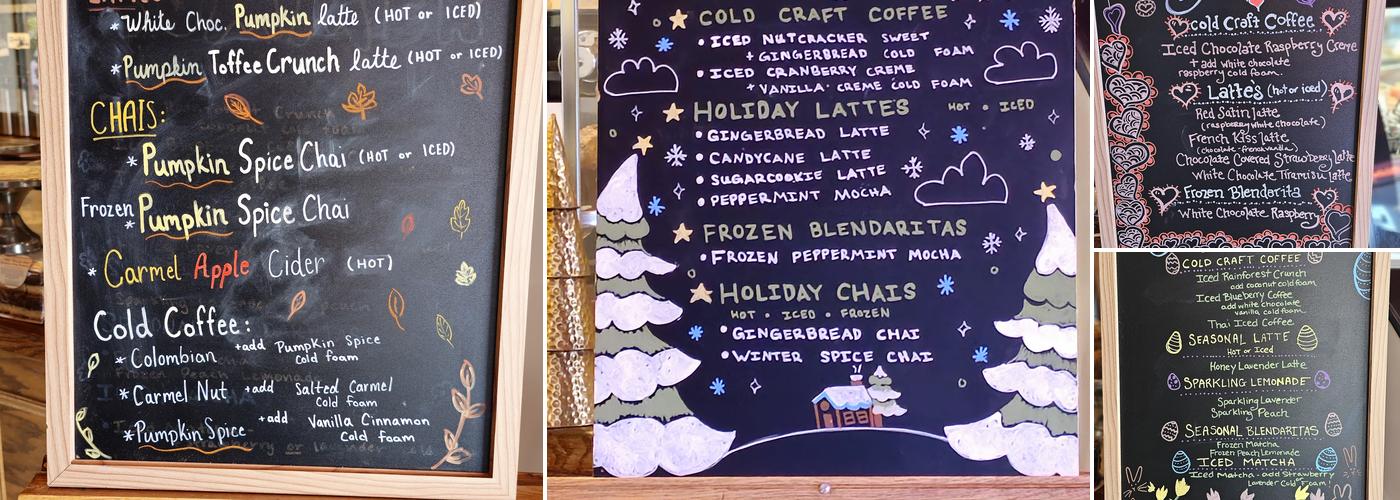 *White Choc. Pumpkin latte (HOT or ICED)
*Pumpkin Toffee Crunch latte (HOT or ICED)
CHAIS:
*Pumpkin Spice Chai (HOT or ICED)
Frozen
*Pumpkin Spice Chai
*Carmel Apple Cider (HOT)
Cold Coffee:
*Colombian +add Pumpkin Spice
Cold foam
*Carmel Nut +add Salted Carmel
Cold foam
*Pumpkin Spice +add Vanilla Cinnamon
Cold foam
COLD CRAFT COFFEE
• ICED NUTCRACKER SWEET
+ GINGERBREAD COLD FOAM
• ICED CRANBERRY CREME
+ VANILLA CREME COLD FOAM
HOLIDAY LATTES HOT • ICED
• GINGERBREAD LATTE
• CANDYCANE LATTE
• SUGARCOOKIE LATTE
• PEPPERMINT MOCHA
FROZEN BLENDARITAS
• FROZEN PEPPERMINT MOCHA
HOLIDAY CHAIS
HOT • ICED • FROZEN
• GINGERBREAD CHAI
• WINTER SPICE CHAI
Cold Craft Coffee
Iced Chocolate Raspberry Creme
+ add white chocolate
raspberry cold foam.
Lattes (hot or iced)
Red Satin latte
(raspberry white chocolate)
French Kiss latte
(chocolate-french vanilla)
Chocolate Covered Strawberry latte
White Chocolate Tiramisu latte
Frozen Blendarita
White Chocolate Raspberry
COLD CRAFT COFFEE
Iced Rainforest Crunch
add coconut cold foam
Iced Blueberry Coffee
add white chocolate
vanilla cold foam
Thai Iced Coffee
SEASONAL LATTE
HOT or ICED
Honey Lavender Latte
SPARKLING LEMONADE
Sparkling Lavender
Sparkling Peach
SEASONAL BLENDARITAS
Frozen Matcha
Frozen Peach Lemonade
ICED MATCHA
Iced Matcha - add Strawberry
Lavender Cold Foam!